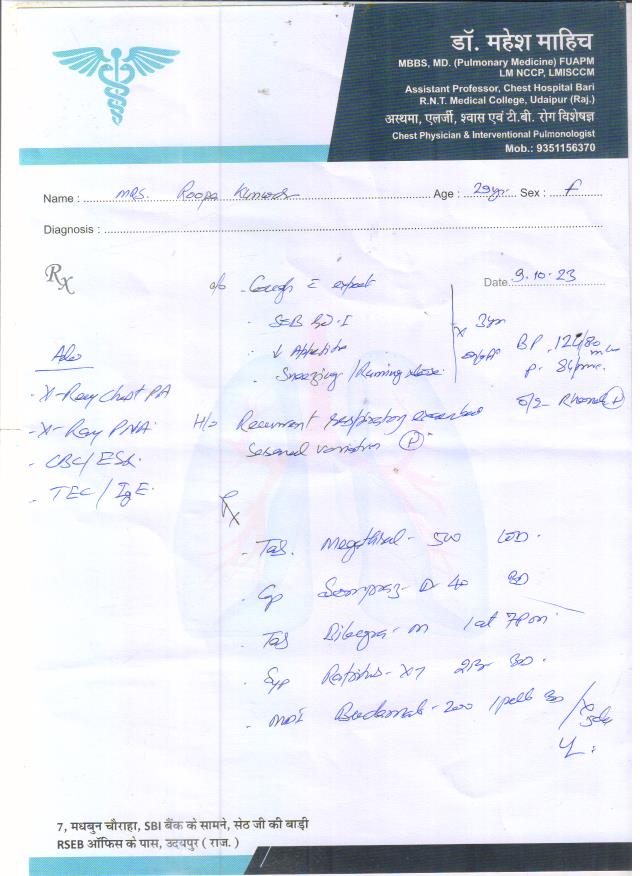 डॉ. महेश माहिच
MBBS, MD. (Pulmonary Medicine) FUAPM
LM NCCP, LMISCCM
Assistant Professor, Chest Hospital Bari
R.N.T. Medical College, Udaipur (Raj.)
अस्थमा, एलर्जी, श्वास एवं टी.बी. रोग विशेषज्ञ
Chest Physician & Interventional Pulmonologist
Mob.: 9351156370
Name : Mrs. Roopa Age : 29yr Sex : f
Diagnosis :
Rx
c/o Cough c expect
Date. 9.10.23
SOB
↓ Appetite
Sneezing / Running nose
x 3yr
BP . 124/80
P. 84/min
Rhonchi (P)
Adv
X-Ray Chest PA
X-Ray PNS
CBC/ESR
TEC/IgE
H/o Recurrent respiratory
Seasonal variation (P)
Rx
Tab. - 500
Cap - D 40 BD
Tab - M 1 at 7 Pm
Syp BD
MDI - 200 1 puff BD
7, मधबुन चौराहा, SBI बैंक के सामने, सेठ जी की बाड़ी
RSEB ऑफिस के पास, उदयपुर ( राज. )